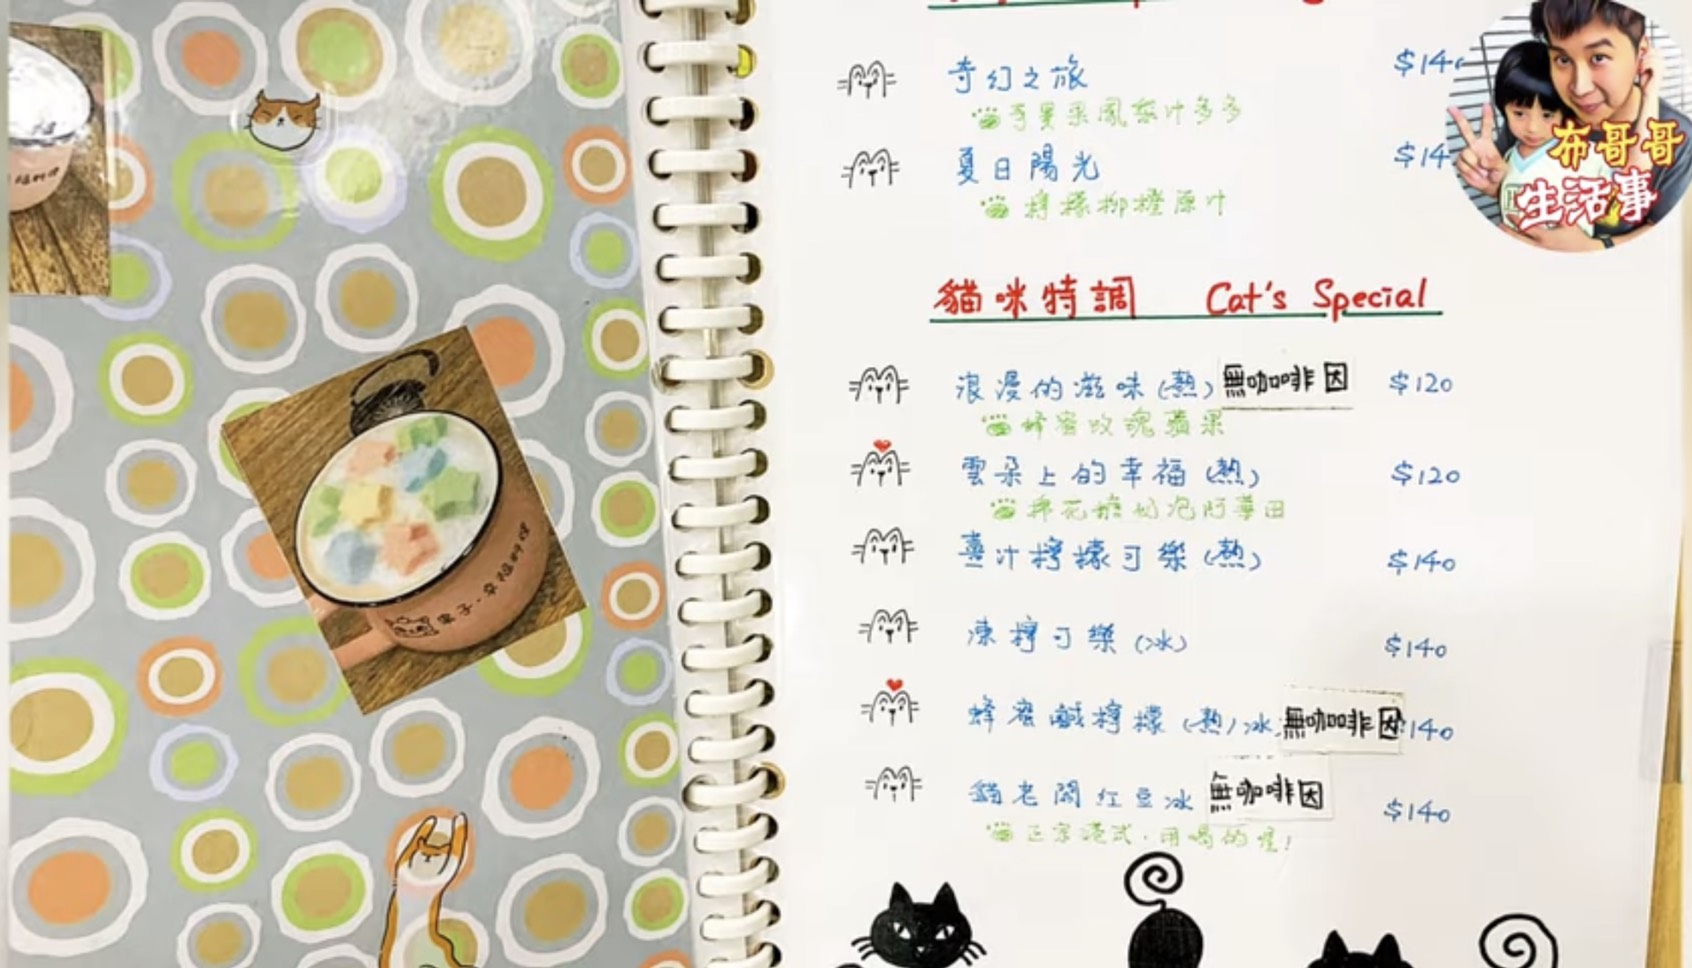 奇幻之旅 $14
奇異果鳳梨汁多多
夏日陽光 $14
檸檬柳橙原汁
布哥哥
生活事
貓咪特調 Cat's Special
浪漫的滋味(熱) 無咖啡因 $120
蜂蜜玫瑰蘋果
雲朵上的幸福(熱) $120
棉花糖奶泡阿華田
薑汁檸檬可樂(熱) $140
凍檸可樂(冰) $140
蜂蜜鹹檸檬(熱)冰 無咖啡因 140
貓老闆紅豆冰 無咖啡因 $140
正宗港式.用喝的喔!
幸福料理